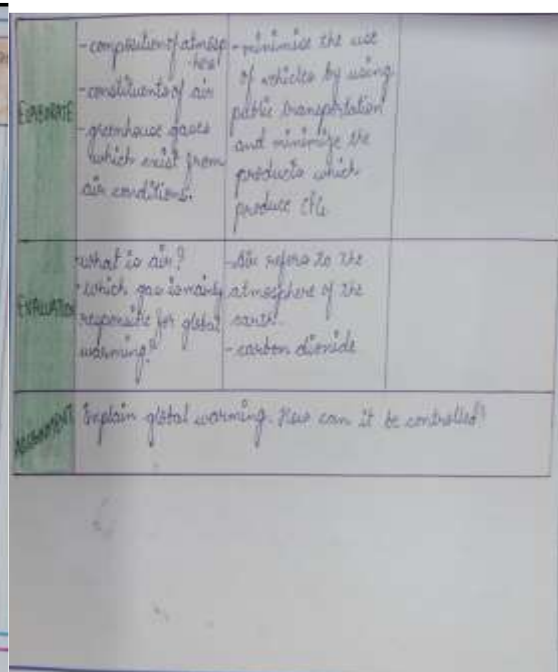 ELABORATE
- composition of atmosp
here
- constituents of air
- greenhouse gases
which exist from
air conditions.
- minimise the use
of vehicles by using
public transportation
and minimize the
products which
produce
EVALUATION
- what is air?
- which gas is mainly
responsible for global
warming?
- Air refers to the
atmosphere of the
earth.
- carbon dioxide
ASSIGNMENT
Explain global warming. How can it be controlled?